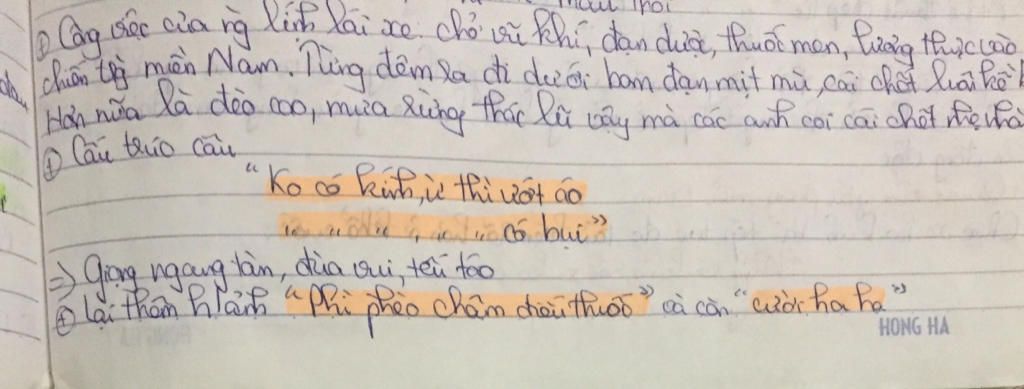 màu thôi
⊕ Công việc của ng lính lái xe chở vũ khí, đạn dược, thuốc men, lương thực vào
chiến trg miền Nam. Từng đêm ra đi dưới bom đạn mịt mù, cái chết luôn kề
Hơn nữa là đèo cao, mưa rừng thác lũ vậy mà các anh coi cái chết nhẹ
⊕ Cấu trúc câu
"Ko có kính, ừ thì ướt áo
" " " , " " có bụi"
=> Giọng ngang tàn, đùa vui, tếu táo
⊕ lại thêm h/ảnh "Phì phèo châm điếu thuốc" và còn "cười ha ha"
HONG HA